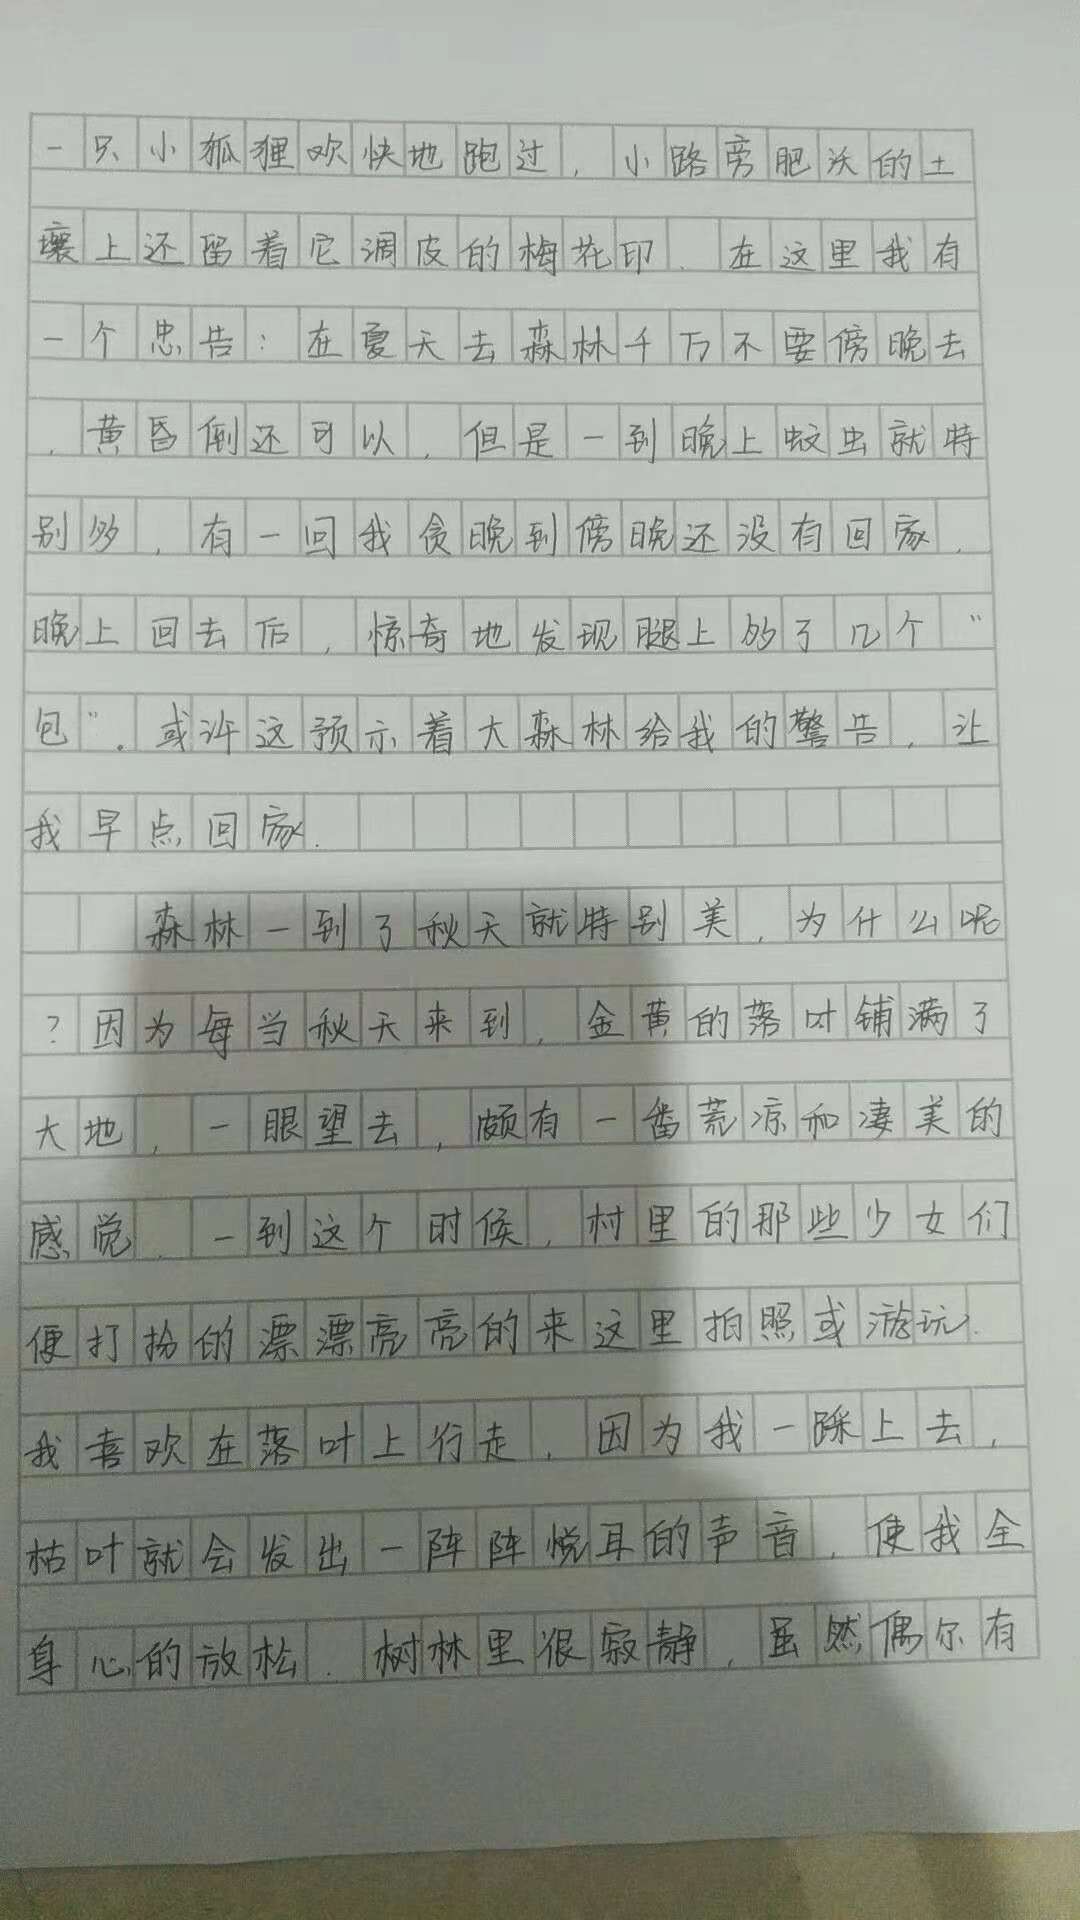 一只小狐狸欢快地跑过，小路旁肥沃的土
壤上还留着它调皮的梅花印．在这里我有
一个忠告：在夏天去森林千万不要傍晚去
，黄昏倒还可以，但是一到晚上蚊虫就特
别多，有一回我贪晚到傍晚还没有回家，
晚上回去后，惊奇地发现腿上多了几个“
包”。或许这预示着大森林给我的警告，让
我早点回家．
森林一到了秋天就特别美，为什么呢
？因为每当秋天来到，金黄的落叶铺满了
大地，一眼望去，颇有一番荒凉和凄美的
感觉．一到这个时候，村里的那些少女们
便打扮的漂漂亮亮的来这里拍照或游玩．
我喜欢在落叶上行走，因为我一踩上去，
枯叶就会发出一阵阵悦耳的声音，使我全
身心的放松．树林里很寂静，虽然偶尔有